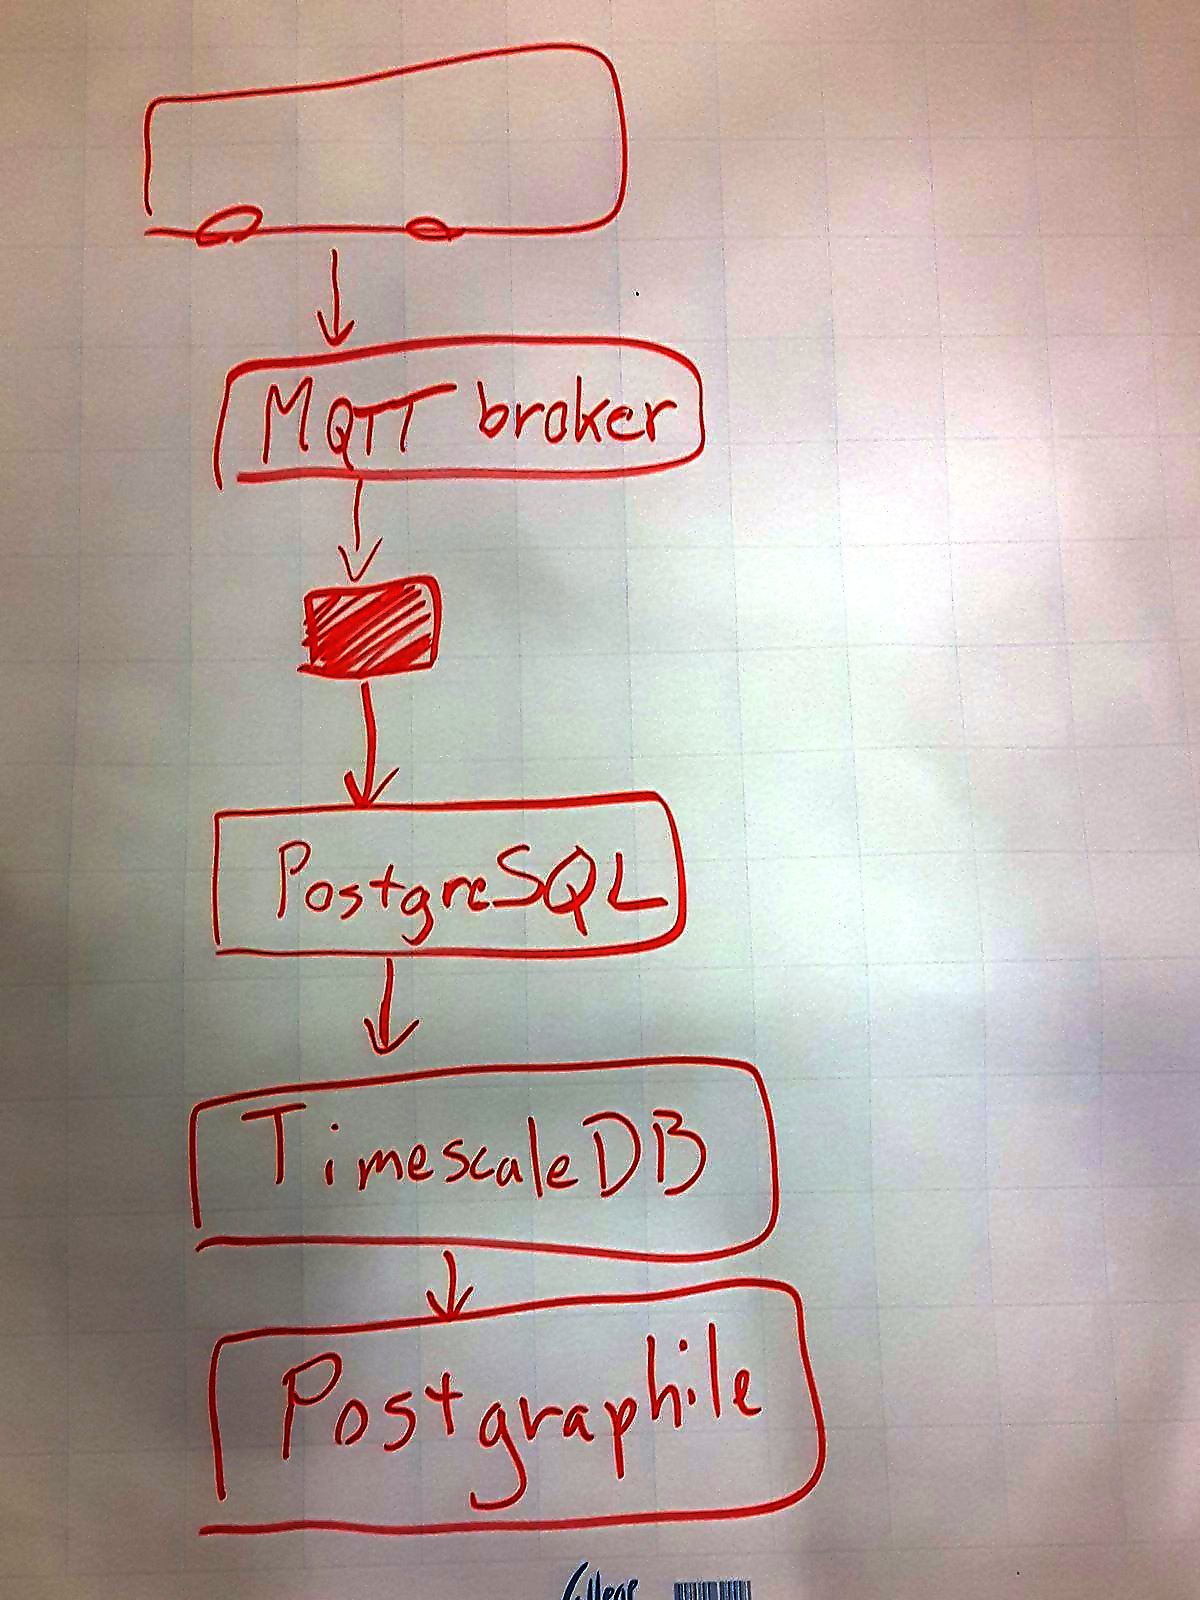 MQTT broker
PostgreSQL
TimescaleDB
Postgraphile